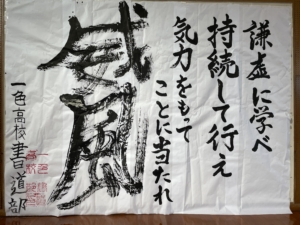 謙虚に学べ
持続して行え
気力をもって
ことに当たれ
威風
一色高校書道部